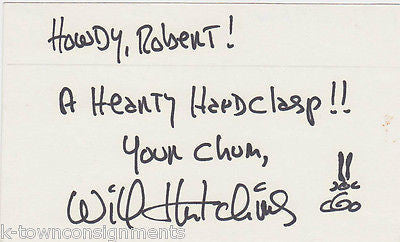 Howdy, Robert!
A Hearty Handclasp!!
Your Chum,
Will Hutchins
k-townconsignments